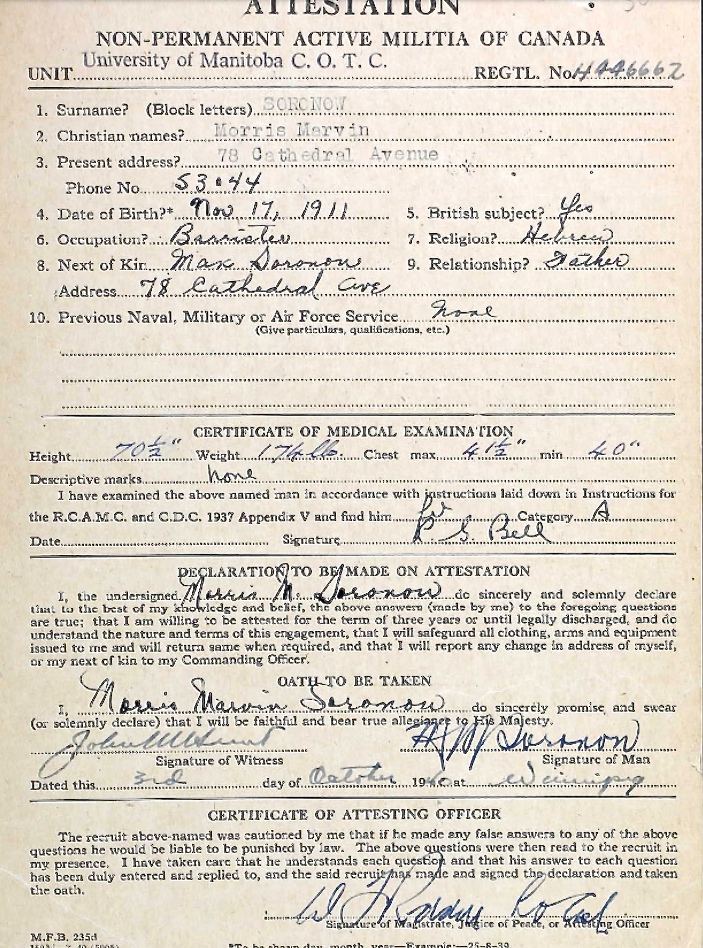 ATTESTATION
NON-PERMANENT ACTIVE MILITIA OF CANADA
University of Manitoba C. O. T. C.
UNIT REGTL. No. 4446662
1. Surname? (Block letters) SORONOW
2. Christian names? Morris Marvin
3. Present address? 78 Cathedral Avenue
Phone No. 53044
4. Date of Birth?* Nov 17, 1911 5. British subject? Yes
6. Occupation? Barrister 7. Religion? Hebrew
8. Next of Kin Max Soronow 9. Relationship? Father
Address 78 Cathedral Ave
10. Previous Naval, Military or Air Force Service none
(Give particulars, qualifications, etc.)
CERTIFICATE OF MEDICAL EXAMINATION
Height 70 1/2" Weight 174 lb. Chest max. 41 1/2" min 40"
Descriptive marks none
I have examined the above named man in accordance with instructions laid down in Instructions for
the R.C.A.M.C. and C.D.C. 1937 Appendix V and find him fit Category A
Date Signature G Bell
DECLARATION TO BE MADE ON ATTESTATION
I, the undersigned Morris M. Soronow do sincerely and solemnly declare
that to the best of my knowledge and belief, the above answers (made by me) to the foregoing questions
are true; that I am willing to be attested for the term of three years or until legally discharged, and do
understand the nature and terms of this engagement, that I will safeguard all clothing, arms and equipment
issued to me and will return same when required, and that I will report any change in address of myself,
or my next of kin to my Commanding Officer.
OATH TO BE TAKEN
I, Morris Marvin Soronow do sincerely promise, and swear
(or solemnly declare) that I will be faithful and bear true allegiance to His Majesty.
John M Soronow
Signature of Witness Signature of Man
Dated this 3rd day of October 1940 at Winnipeg
CERTIFICATE OF ATTESTING OFFICER
The recruit above-named was cautioned by me that if he made any false answers to any of the above
questions he would be liable to be punished by law. The above questions were then read to the recruit in
my presence. I have taken care that he understands each question and that his answer to each question
has been duly entered and replied to, and the said recruit has made and signed the declaration and taken
the oath.
Signature of Magistrate, Justice of Peace, or Attesting Officer
M.F.B. 235d
*To be shown day, month, year—Example:—25-8-39